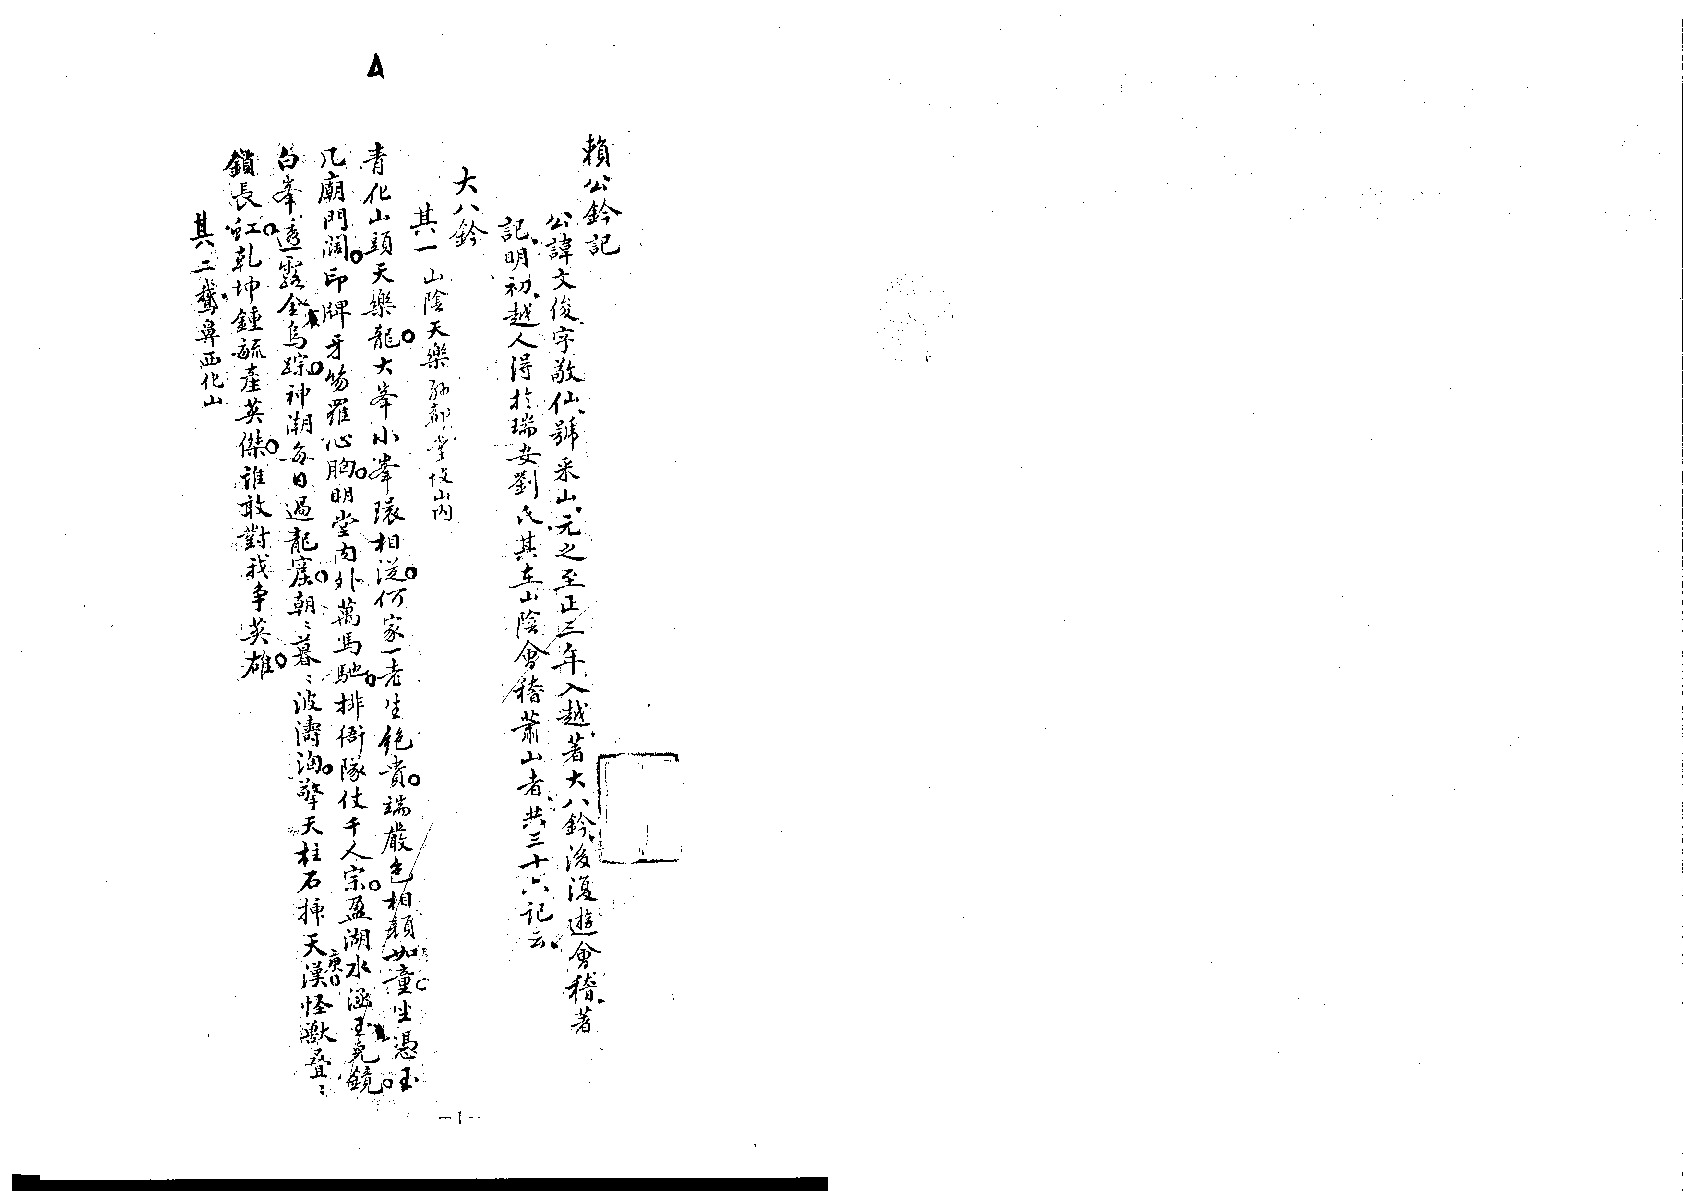 A
賴公鈐記
公諱文俊字敬仙、號釆山、元之至正三年入越、著大八鈐、後復遊會稽、著
記、明初、越人得於瑞安劉氏、其在山陰會稽蕭山者、共三十六記云、
大八鈐
其一 山陰天樂 都堂 山內
青化山頭天樂龍。大峯小峯環相從。何家一老生絶貴。端嚴色相顏如童。坐憑玉
几廟門闊。印牌牙笏羅心胸。明堂內外萬馬馳。排衙隊仗千人宗。盈湖水涵玉 鏡。
白峯透露金烏踪。神潮每日過龍窟。朝〻暮〻波濤洶。擎天柱石揷天漢。怪獸叠〻
鎖長虹。乾坤鍾毓產英傑。誰敢對我爭英雄。
其二 鵞鼻西化山
—1—